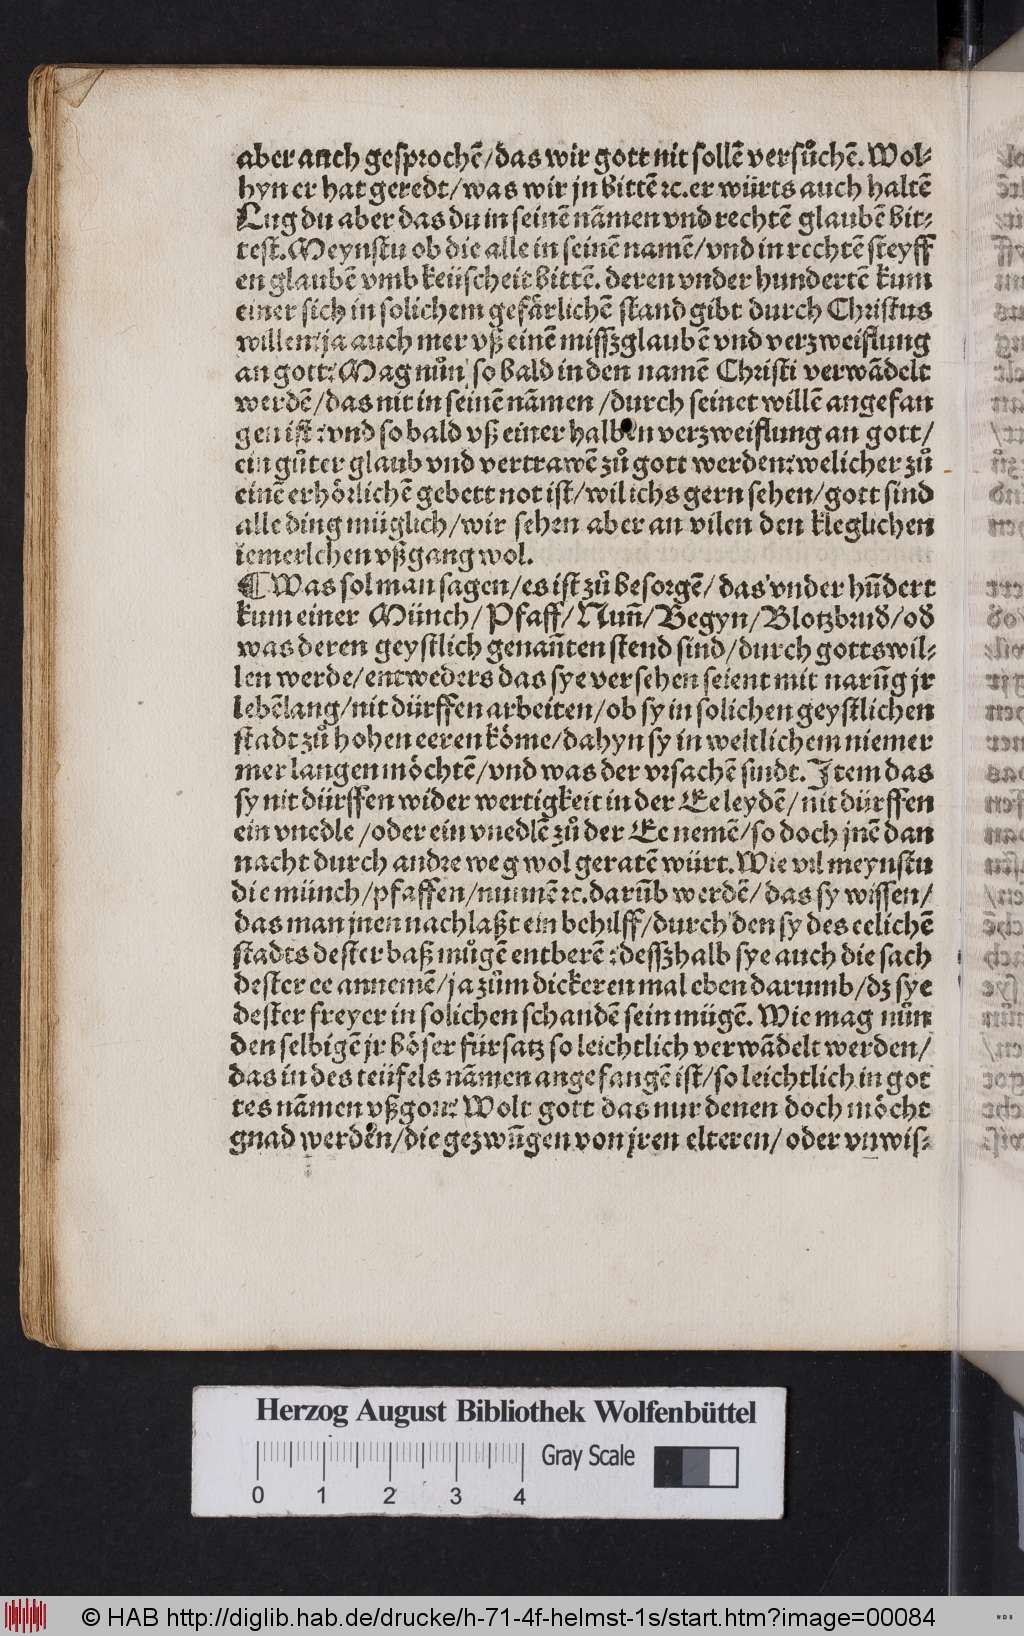 aber auch gesprochẽ/das wir gott nit sollẽ versůchẽ. Wol⸗
hyn er hat geredt/was wir jn bittẽ ꝛc. er würts auch haltẽ
Lug du aber das du in seinẽ nãmen vnd rechtẽ glaubẽ bit⸗
test. Meynstu ob die alle in seinẽ namẽ/vnd in rechtẽ steyff
en glaubẽ vmb keüscheit bittẽ. deren vnder hundertẽ kum
einer sich in solichem gefärlichẽ stand gibt durch Christus
willen: ja auch mer vß einẽ missꝫglaubẽ vnd verzweiflung
an gott: Mag nůn so bald in den namẽ Christi verwãdelt
werdẽ/das nit in seinẽ nãmen /durch seinet willẽ angefan
gen ist: vnd so bald vß einer halben verzweiflung an gott/
ein gůter glaub vnd vertrawẽ zů gott werden: welicher zů
einẽ erhörlichẽ gebett not ist/wil ichs gern sehen/gott sind
alle ding müglich/wir sehen aber an vilen den kleglichen
iemerlchen vßgang wol.
¶ Was sol man sagen/es ist zů besorgẽ/ das vnder hũdert
kum einer Münch/ Pfaff/ Nuñ/ Begyn/ Blotzbruđ/ ođ
was deren geystlich genañten stend sind/durch gotts wil⸗
len werde/entweders das sye versehen seient mit narũg jr
lebẽlang/nit dürffen arbeiten/ob sy in solichen geystlichen
stadt zů hohen eeren kõme/dahyn sy in weltlichem niemer
mer langen möchtẽ/vnd was der vrsachẽ sindt. Item das
sy nit dürffen wider wertigkeit in der Ee leydẽ/ nit dürffen
ein vnedle /oder ein vnedlẽ zů der Ee nemẽ/so doch jnẽ dan
nacht durch andre weg wol geratẽ würt. Wie vil meynstu
die münch/pfaffen/nunnẽ ꝛc. darũb werdẽ/ das sy wissen/
das man jnen nachlaßt ein behilff/durch den sy des eelichẽ
stadts dester baß můgẽ entberẽ: dessꝫhalb sye auch die sach
dester ee annemẽ/ja zům dickeren mal eben darumb/dz sye
dester freyer in solichen schandẽ sein mügẽ. Wie mag nůn
den selbigẽ jr böser fürsatz so leichtlich verwãdelt werden/
das in des teüfels nãmen angefangẽ ist/so leichtlich in got
tes nãmen vßgon: Wolt gott das nur denen doch möcht
gnad werden/die gezwũgen von jren elteren/ oder vnwis⸗
Herzog August Bibliothek Wolfenbüttel
Gray Scale
0 1 2 3 4
© HAB http://diglib.hab.de/drucke/h-71-4f-helmst-1s/start.htm?image=00084